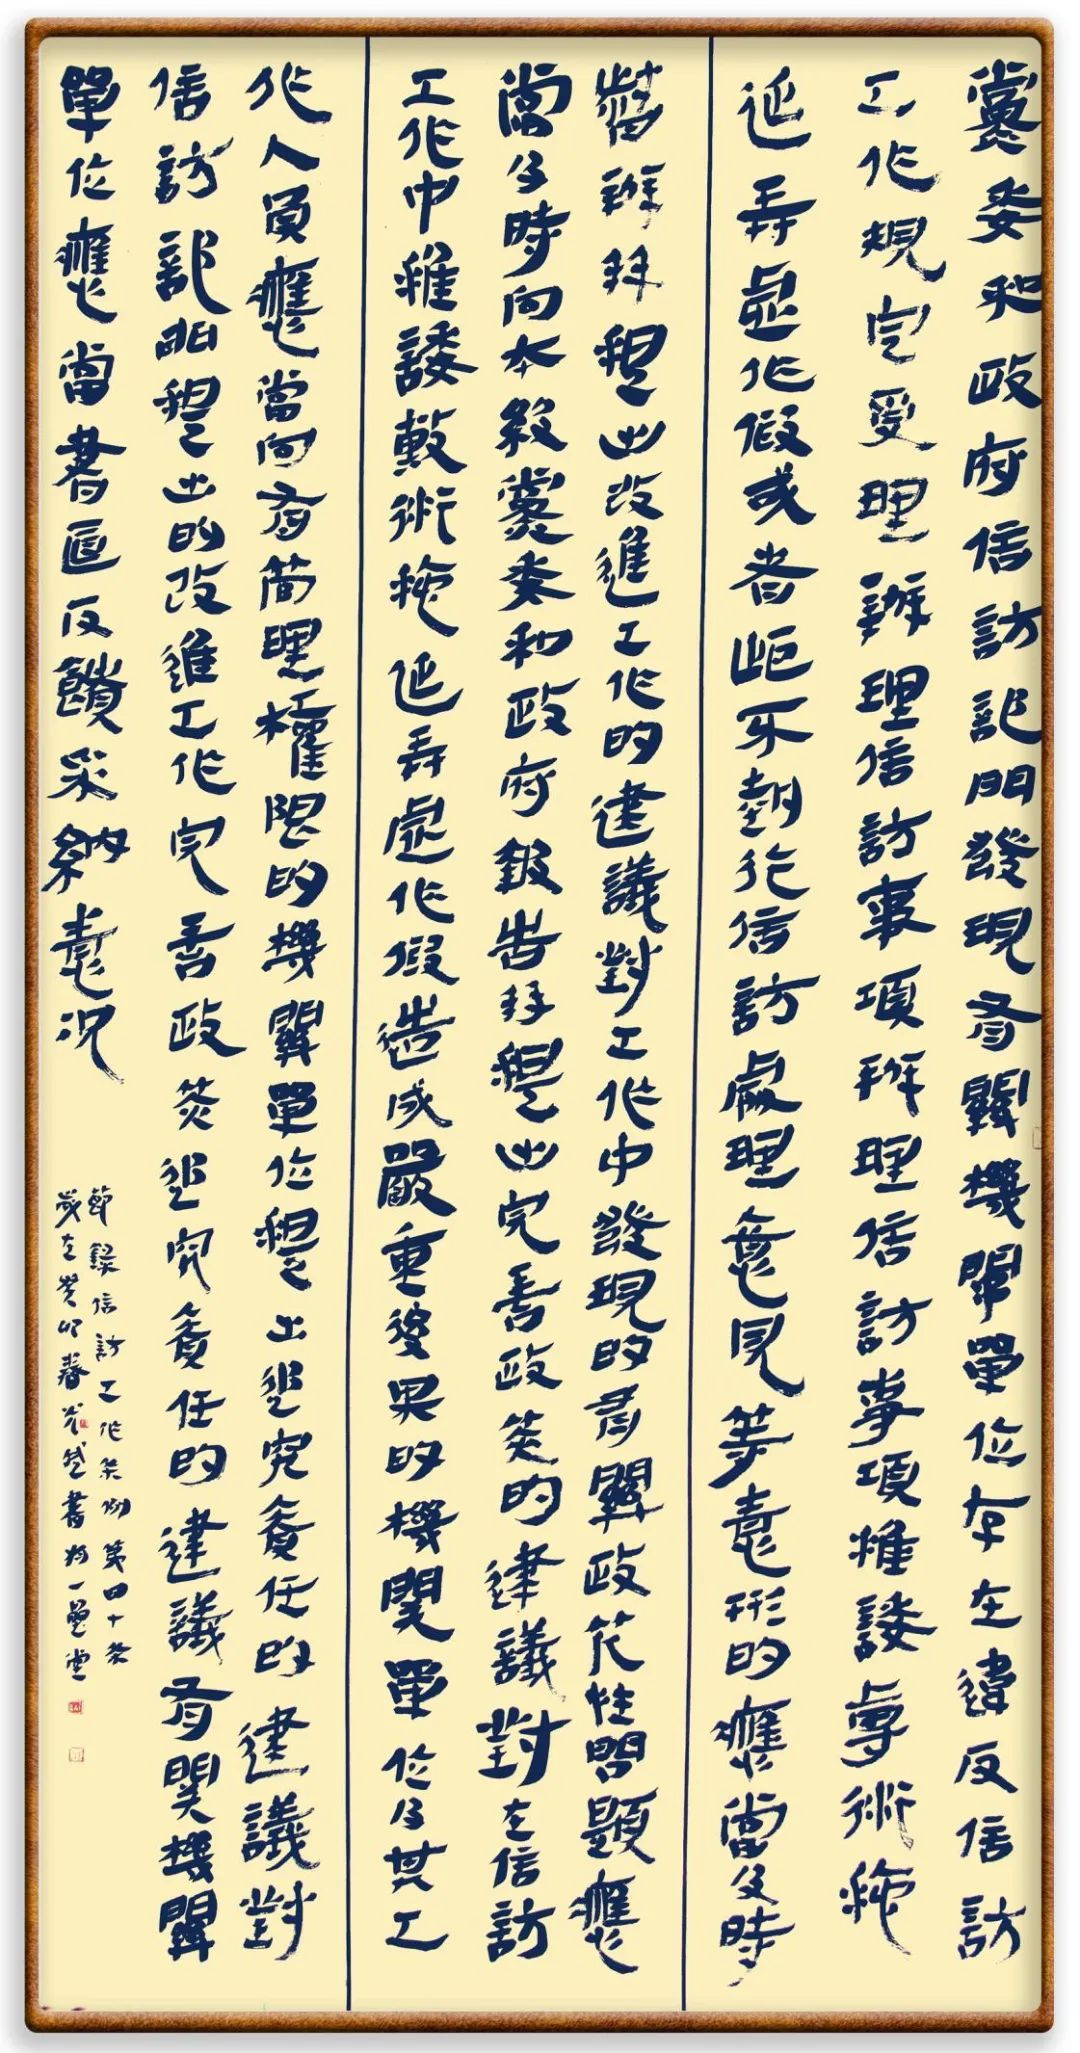 黨委和政府信訪部門發現有關機關單位存在違反信訪
工作規定受理辦理信訪事項辦理信訪事項推諉敷衍拖
延弄虛作假或者拒不執行信訪處理意見等情形的應當及時
督辦並提出改進工作的建議對工作中發現的有關政策性問題應
當及時向本級黨委和政府報告並提出完善政策的建議對在信訪
工作中推諉敷衍拖延弄虛作假造成嚴重後果的機關單位及其工
作人員應當向有管理權限的機關單位提出追究責任的建議對
信訪部門提出的改進工作完善政策追究責任的建議有關機關
單位應當書面反饋采納情況
節錄信訪工作条例第四十条
歲在癸卯春書於一堂